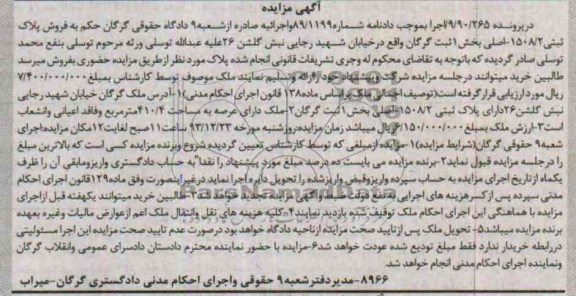 آگهی مزایده
درپرونده ۷۹/۹۰/۲۶۵اجرا بموجب دادنامه شماره۸۹/۱۱۹۹واجرائیه صادره ازشعبه۹ دادگاه حقوقی گرگان حکم به فروش پلاک
ثبتی۱۵۰۸/۲-اصلی بخش۱ثبت گرگان واقع درخیابان شهید رجایی نبش گلشن ۲۶علیه عبدالله توسلی ورثه مرحوم توسلی بنفع محمد
توسلی صادر گردیده که باتوجه به تقاضای محکوم له وجری تشریفات قانونی انجام شده پلاک مورد نظر از طریق مزایده حضوری بفروش میرسد
طالبین خرید میتوانند درجلسه مزایده شرکت وپیشنهاد خود را ارائه وتسلیم نمایند ملک موصوف توسط کارشناس بمبلغ۷/۴۰۰/۰۰۰/۰۰۰
ریال مورد ارزیابی قرار گرفته است(توصیف اجمالی ملک براساس ماده۱۳۸ قانون اجرای احکام مدنی)۱-آدرس ملک گرگان خیابان شهید رجایی
نبش گلشن۲۶دارای پلاک ثبتی ۱۵۰۸/۲اصلی بخش۱ثبت گرگان۲-ملک دارای عرصه به مساحت ۴۱۰/۴مترمربع وفاقد اعیانی وانشعاب
است۳-ارزش ملک بمبلغ۷/۱۵۰/۰۰۰/۰۰۰ریال میباشد زمان مزایده:روزشنبه مورخه ۹۳/۱۲/۲۳ ساعت۱۱صبح لغایت۱۲مکان مزایده:اجرای
شعبه۹ حقوقی گرگان(شرایط مزایده)۱-مزایده ازمبلغی که توسط کارشناس تعیین گردیده شروع وبرنده مزایده کسی است که بالاترین مبلغ
را درجلسه مزایده قبول نماید۲-برنده مزایده می بایست ده درصد مبلغ مورد پیشنهاد را نقدا"به حساب دادگستری واریزومابقی آن را ظرف
یکماه از تاریخ اجرای مزایده به حساب سپرده واریزوقبض واریز شده را تحویل دایره اجرا نماید درغیراینصورت وفق ماده۱۲۹قانون اجرای احکام
مدنی سپرده پس از کسر هزینه های اجرایی بنفع دولت ضبط وآگهی مزایده تجدید خواهد شد۳-طالبین خرید میتوانند یکهفته قبل ازاجرای
مزایده با هماهنگی این اجرای احکام ملک توقیف شده بازدید نمایند۴-کلیه هزینه های نقل وانتقال ملک اعم ازعوارض مالیات وغیره بعهده
برنده مزایده میباشد۵-تحویل ملک پس ازتایید صحت مزایده ازناحیه دادگاه خواهد بود درصورت عدم تایید صحت مزایده این اجرا مسئولیتی
دررابطه خریدار ندارد فقط مبلغ تودیع شده عودت خواهد شد۶-مزایده با حضور نماینده محترم دادستان دادسرای عمومی وانقلاب گرگان
ونماینده اجرای احکام مدنی انجام خواهد شد.
۸۹۶۶-مدیردفترشعبه۹ حقوقی واجرای احکام مدنی دادگستری گرگان-میراب